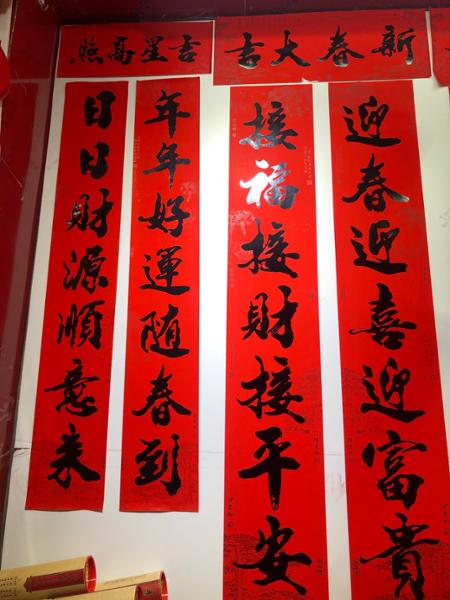 新春大吉
迎春迎喜迎富貴
接福接財接平安
吉星高照
年年好運隨春到
日日財源順意来